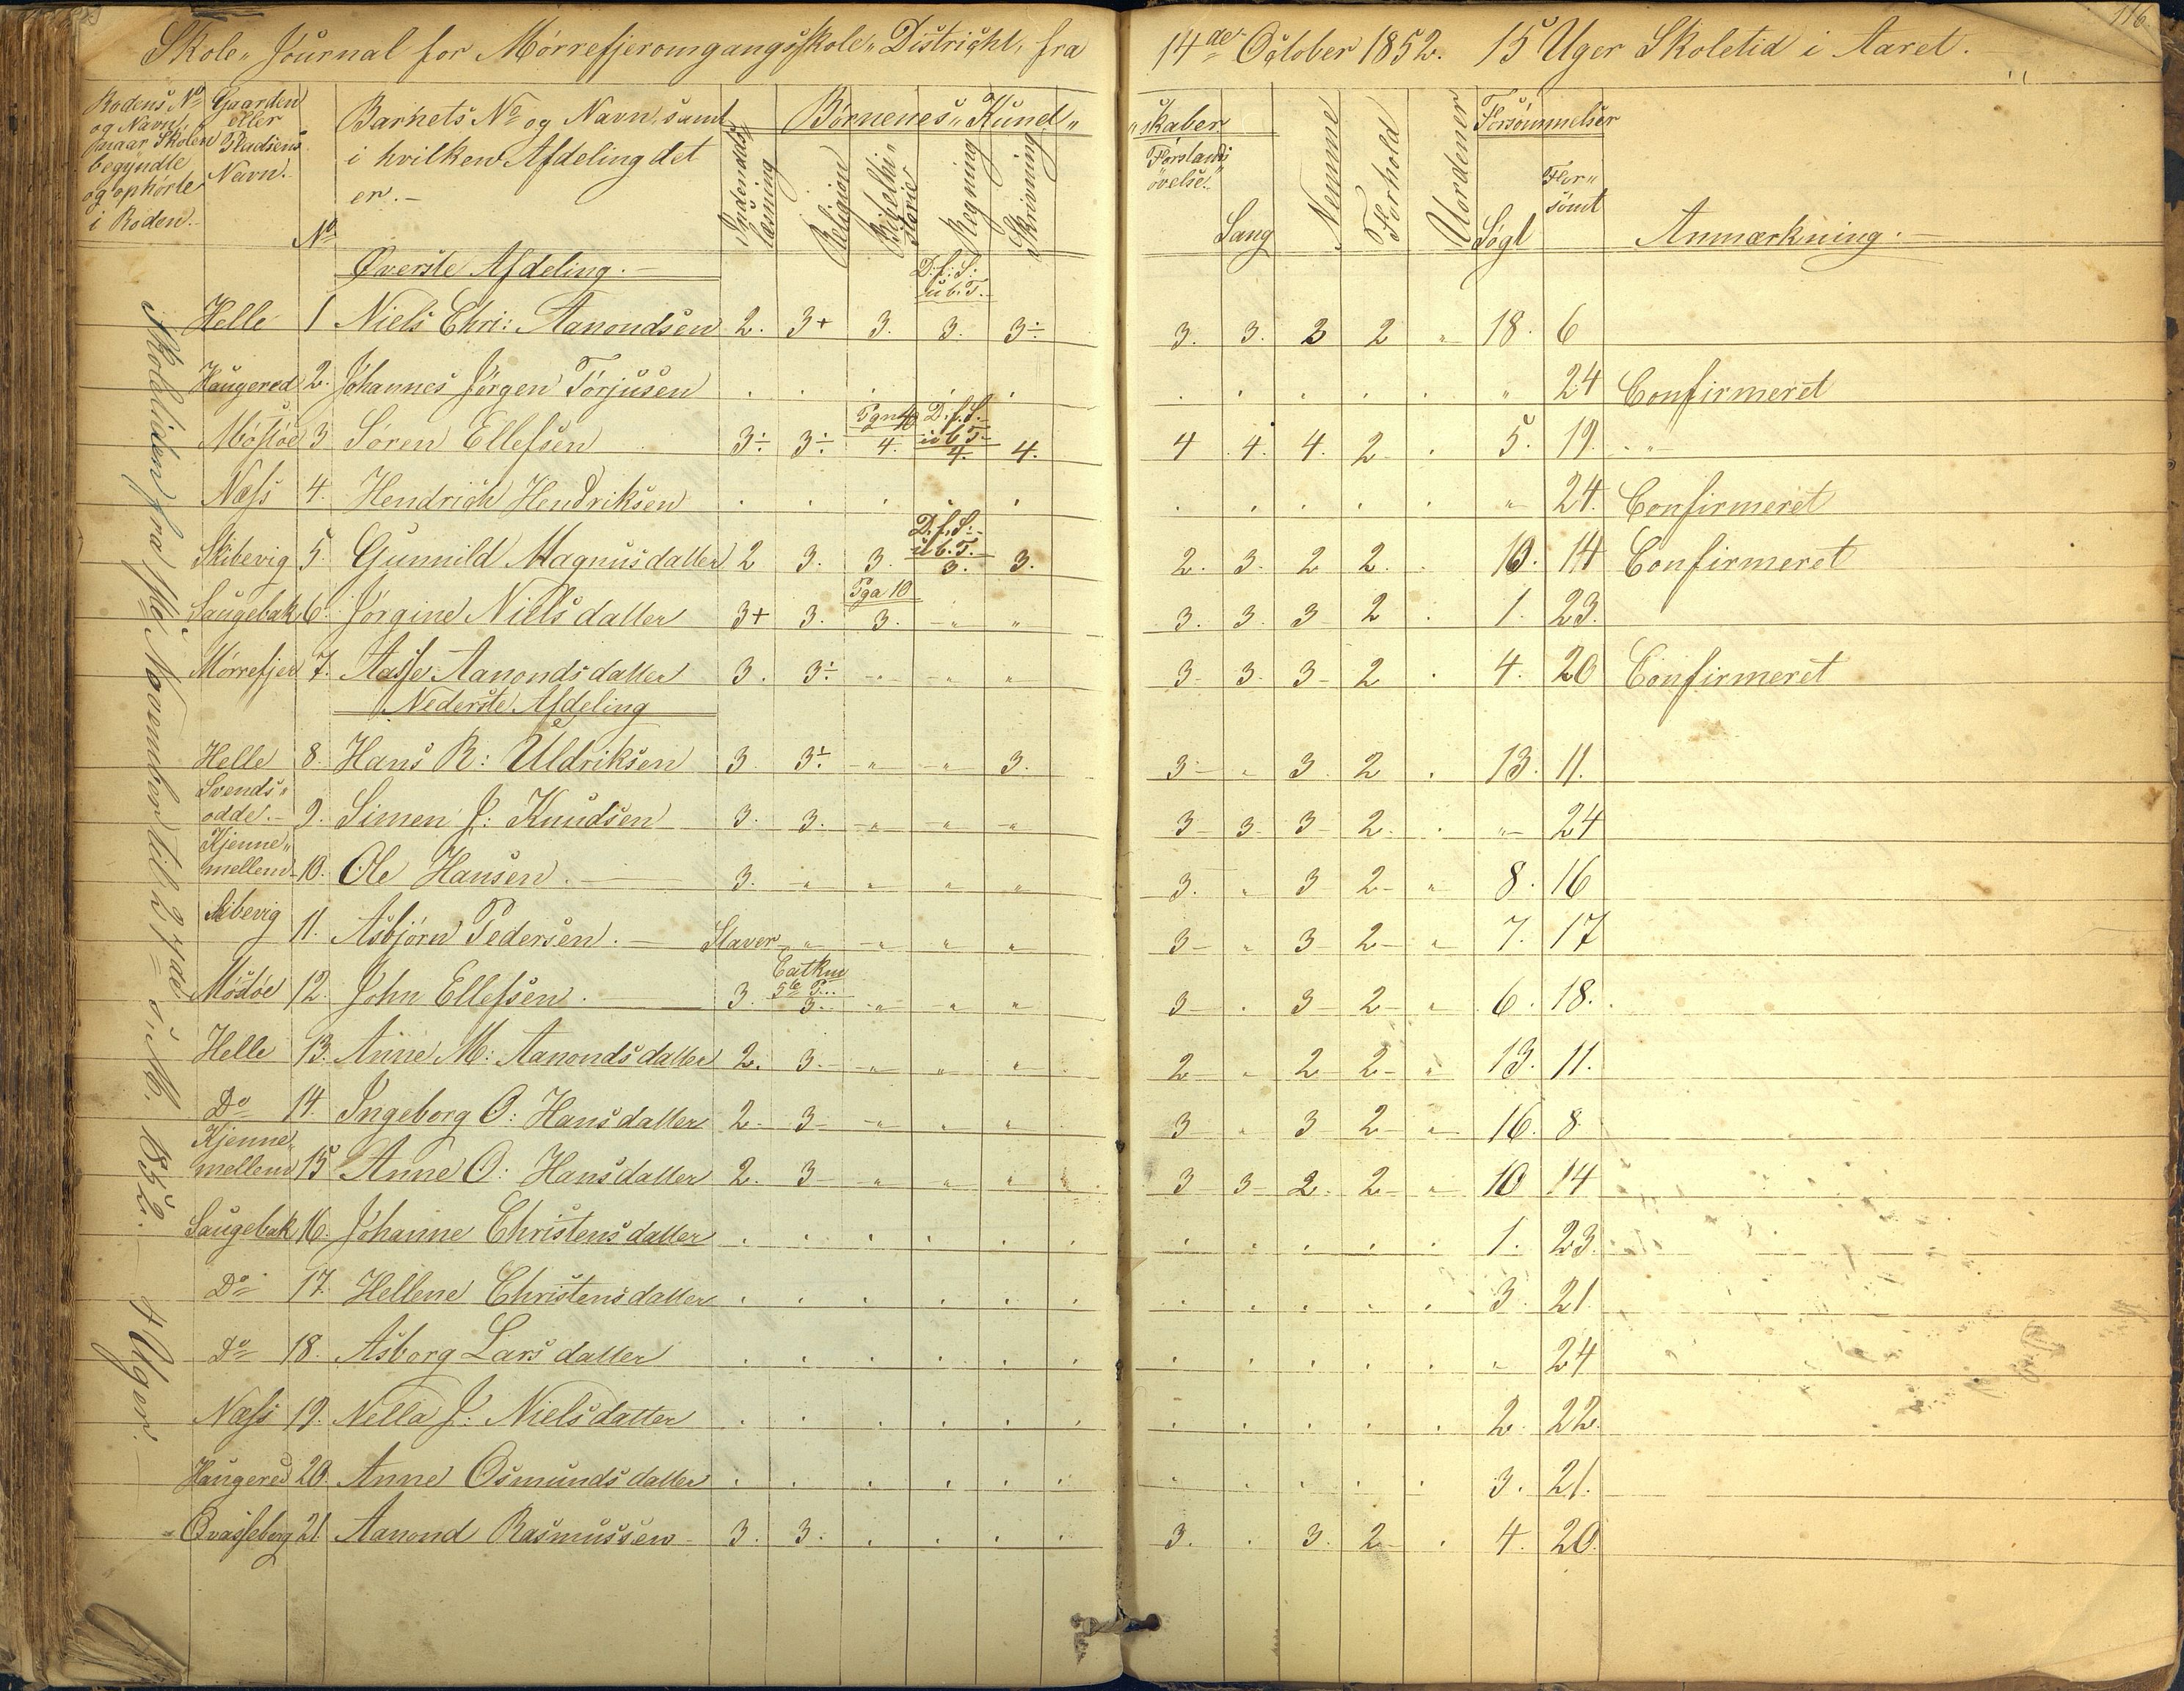 116
Skole„ Journal for Mörrefjeromgangsskole„ Districkt, fra 14de October 1852. 15 Uger Skoletid i Aaret.
Rodens No og Navn, naar Skolen begyndte og ophörte i Roden.
Gaarden eller Pladsens Navn.
No
Barnets No og Navn, samt i hvilken Afdeling det er.
Börnenes„ Kund„ „skaber
Indenadslæsning
Religion
Bibelhistorie
Regning
Skrivning
Forstands„ övelse.
Sang
Nemme
Forhold
Uordener
Forsömmelser
Sögt
For„ sömt
Anmærkning.
Skoletiden fra 1ste November til 27de s. M. 1852. 4 Uger.
Överste Afdeling.
D: f: S: i ub. T.
Helle 1 Niels Chri: Aanondsen 2. 3+ 3. 3. 3÷ 3. 3. 3 2 „ 18. 6
Haugered 2. Johannes Jörgen Törjusen . . . . . . . . . . „ 24 Confirmeret
Pgn 40 D. f. S. i ub T.
Möstöe 3 Sören Ellefsen 3÷ 3÷ 4. 4. 4. 4 4. 4. 2 . 5. 19. „
Næss 4. Hendrich Hendriksen . . . . . . . . . . „ 24. Confirmeret
D. f. S. i ub. T.
Skibevig 5. Gunnild Magnusdatter 2 3. 3. 3. 3. 2. 3. 2 2. . 10. 14 Confirmeret
Pga 10
Saugebak 6. Jörgine Nielsdatter 3+ 3. 3. „ „ 3. 3. 3 2 . 1. 23.
Mörrefjer 7. Aasse Aanondsdatter 3. 3÷ „ „ „ 3 3. 3 2 . 4. 20 Confirmeret
Nederste Afdeling
Helle 8. Hans R: Uldriksen 3 3÷ „ „ 3. 3 „ 3. 2 . 13. 11.
Svends„ odde. 9. Simen J: Knudsen 3. 3. „ „ „ 3 3. 3 2. . „ 24
Kjenne„ mellem 10. Ole Hansen. 3. „ „ „ „ 3. „ 3 2 „ 8. 16
Skibevig 11. Asbjörn Pedersen. Staver „ „ „ „ 3 „ 3 2 „ 7. 17
Catkm 5te P.
Möstöe 12. John Ellefsen. 3. 3. „ „ „ 3 . 3 2 „ 6. 18.
Helle 13. Anne M: Aanondsdatter 2. 3. „ „ „ 2 „ 2 2 „ 13. 11.
Do 14. Ingeborg O: Hansdatter 2 3 „ „ „ 3 „ 3 2 „ 16. 8
Kjenne„ mellem 15 Anne O: Hansdatter 2. 3 „ „ „ 3 3 2. 2 „ 10 14
Saugebak 16. Johanne Christensdatter . . . . . . . . . . . 1. 23.
Do 17. Hellene Christensdatter . . . . . . . . . . . 3. 21
Do 18. Asborg Larsdatter . . . . . . . . . . . „ 24
Næss 19. Nella J: Nielsdatter . . . . . . . . . . . 2. 22.
Haugered 20. Anne Osmundsdatter . . . . . . . . . . . 3. 21.
Qvasseberg 21 Aanond Rasmussen 3. 3. . . . . 3. . 3. 2 . 4. 20.